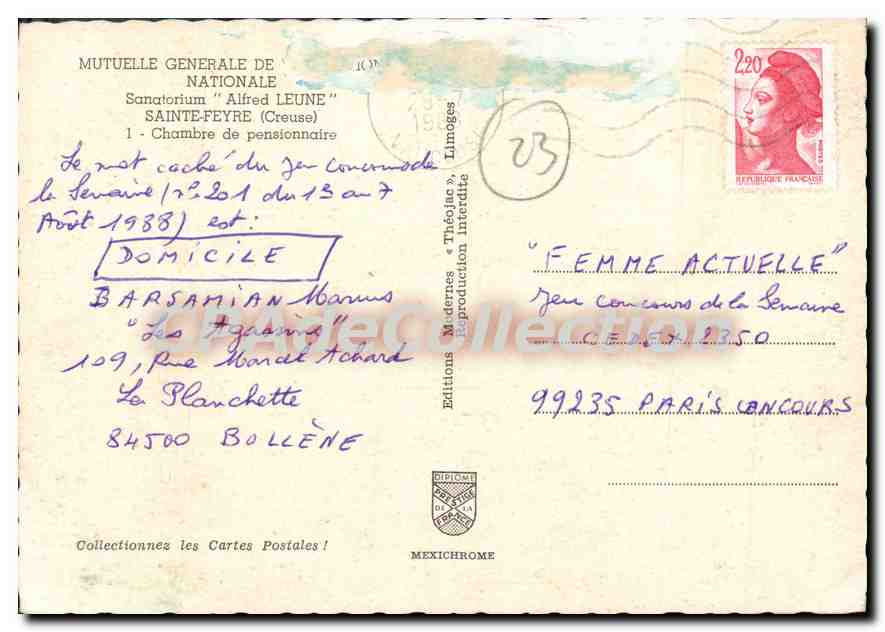 MUTUELLE GENERALE DE
NATIONALE
Sanatorium " Alfred LEUNE "
SAINTE-FEYRE (Creuse)
1 - Chambre de pensionnaire
Le mot caché du jeu concours de
la Semaine (n° 201 du 1er au 7
Août 1988) est :
DOMICILE
BARSAMIAN Marius
"Les Agassins"
109, Rue Marcel Achard
La Planchette
84500 BOLLÈNE
Collectionnez les Cartes Postales !
Editions Modernes « Théojac », Limoges
Reproduction interdite
23
2,20
POSTES
REPUBLIQUE FRANÇAISE
"FEMME ACTUELLE"
Jeu concours de la Semaine
CEDEX 2350
99235 PARIS CONCOURS
DIPLOME
PRESTIGE
DE LA
FRANCE
MEXICHROME
CPAdeCollection.com